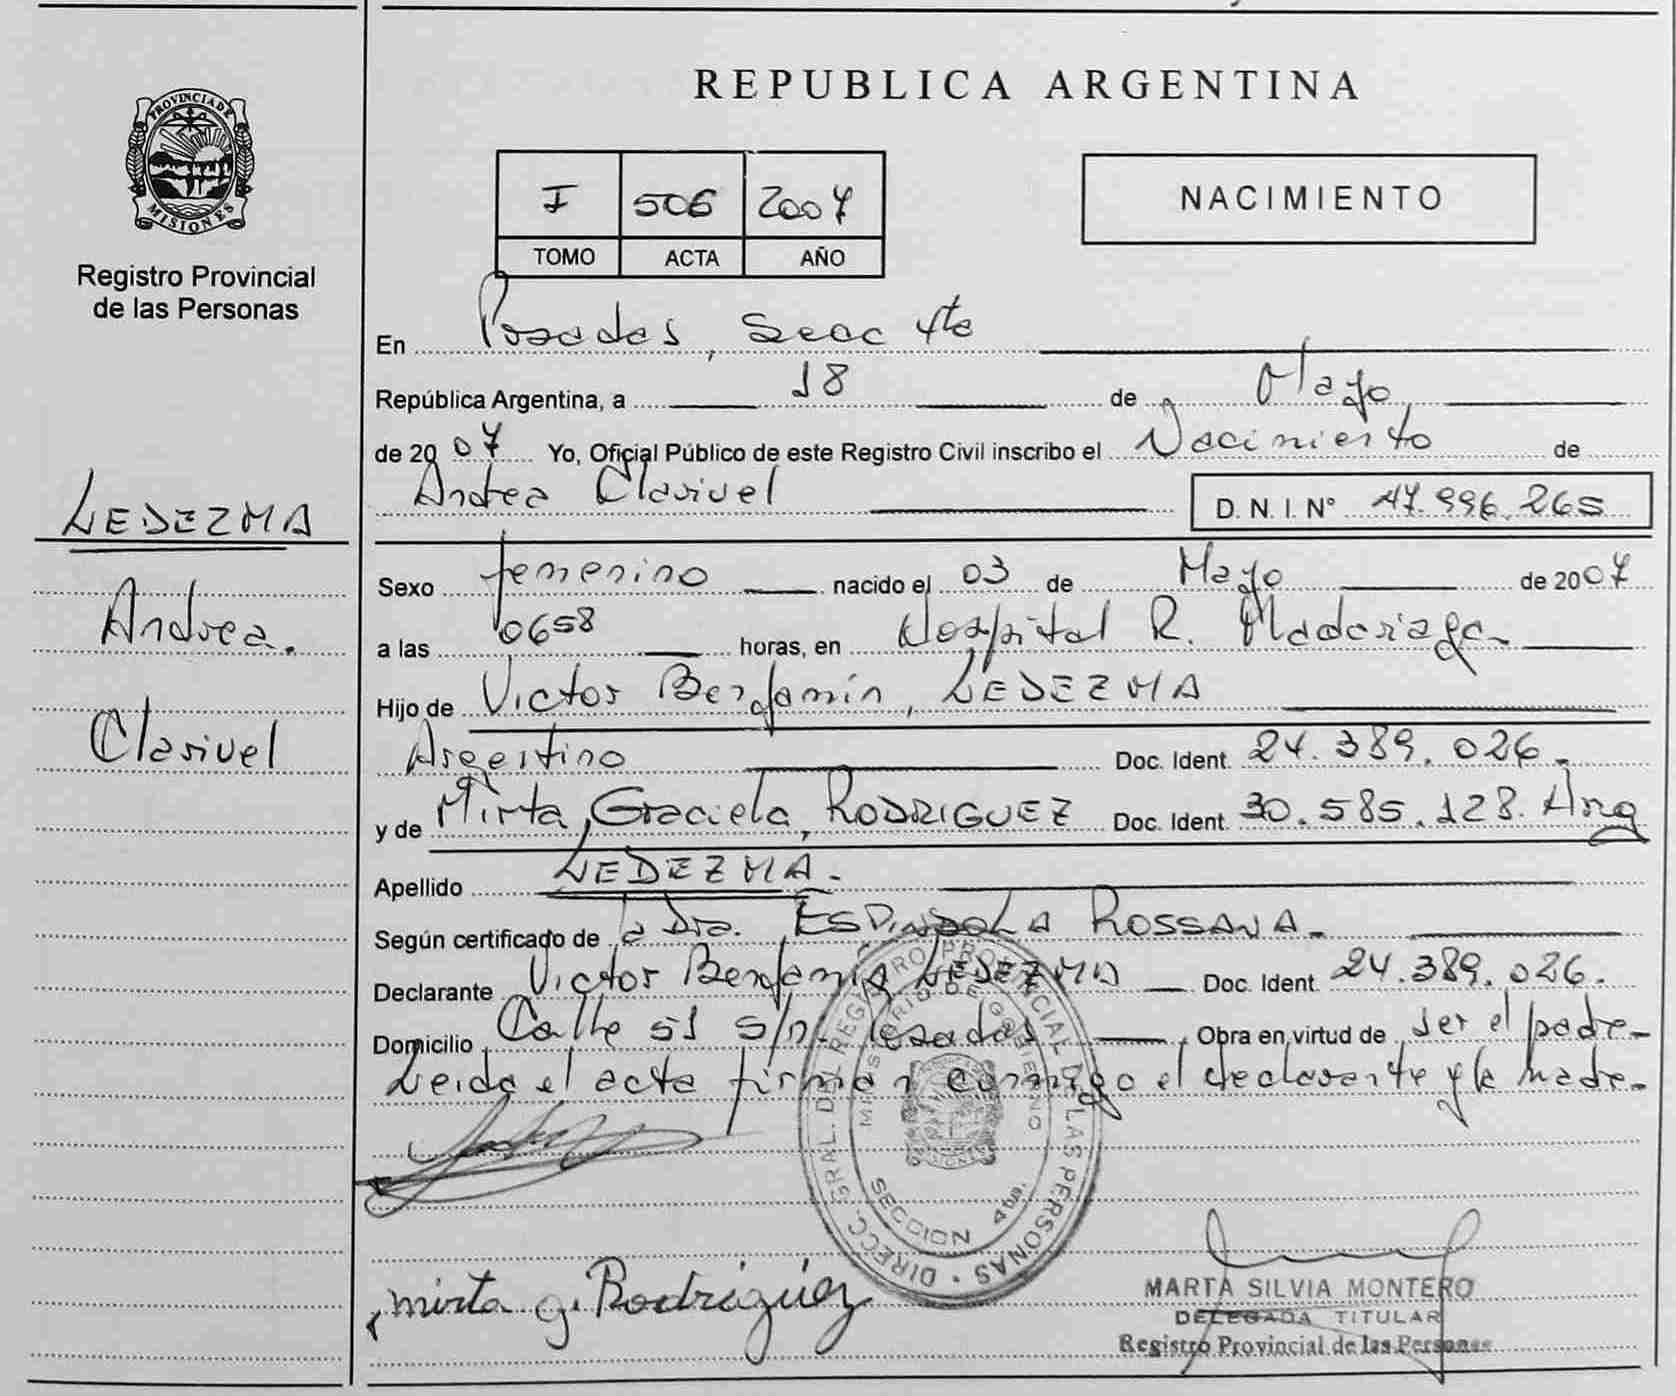 REPUBLICA ARGENTINA
PROVINCIA DE MISIONES
Registro Provincial
de las Personas
I 506 2007
TOMO ACTA AÑO
NACIMIENTO
LEDEZMA
Andrea.
Clarivel
En Posadas, Secc 4ta
República Argentina, a 18 de Mayo
de 2007 Yo, Oficial Público de este Registro Civil inscribo el Nacimiento de
Andrea Clarivel D.N.I. Nº 47.996.265
Sexo femenino nacido el 03 de Mayo de 2007
a las 0658 horas, en Hospital R. Madariaga.
Hijo de Victor Benjamín, LEDEZMA
Argentino Doc. Ident. 24.389.026.
y de Mirta, Graciela, RODRIGUEZ Doc. Ident. 30.585.128. Arg
Apellido LEDEZMA.
Según certificado de la Dra. ESPINDOLA ROSSANA.
Declarante Victor Benjamín LEDEZMA Doc. Ident. 24.389.026.
Domicilio Calle 51 s/n. Posadas Obra en virtud de ser el padre.
Leida el acta firman conmigo el declarante y la madre.
DIRECC. GRAL. DEL REGISTRO PROVINCIAL DE LAS PERSONAS
MINISTERIO DE GOBIERNO
MISIONES
SECCION 4ta.
mirta g. Rodriguez
MARTA SILVIA MONTERO
DELEGADA TITULAR
Registro Provincial de las Personas